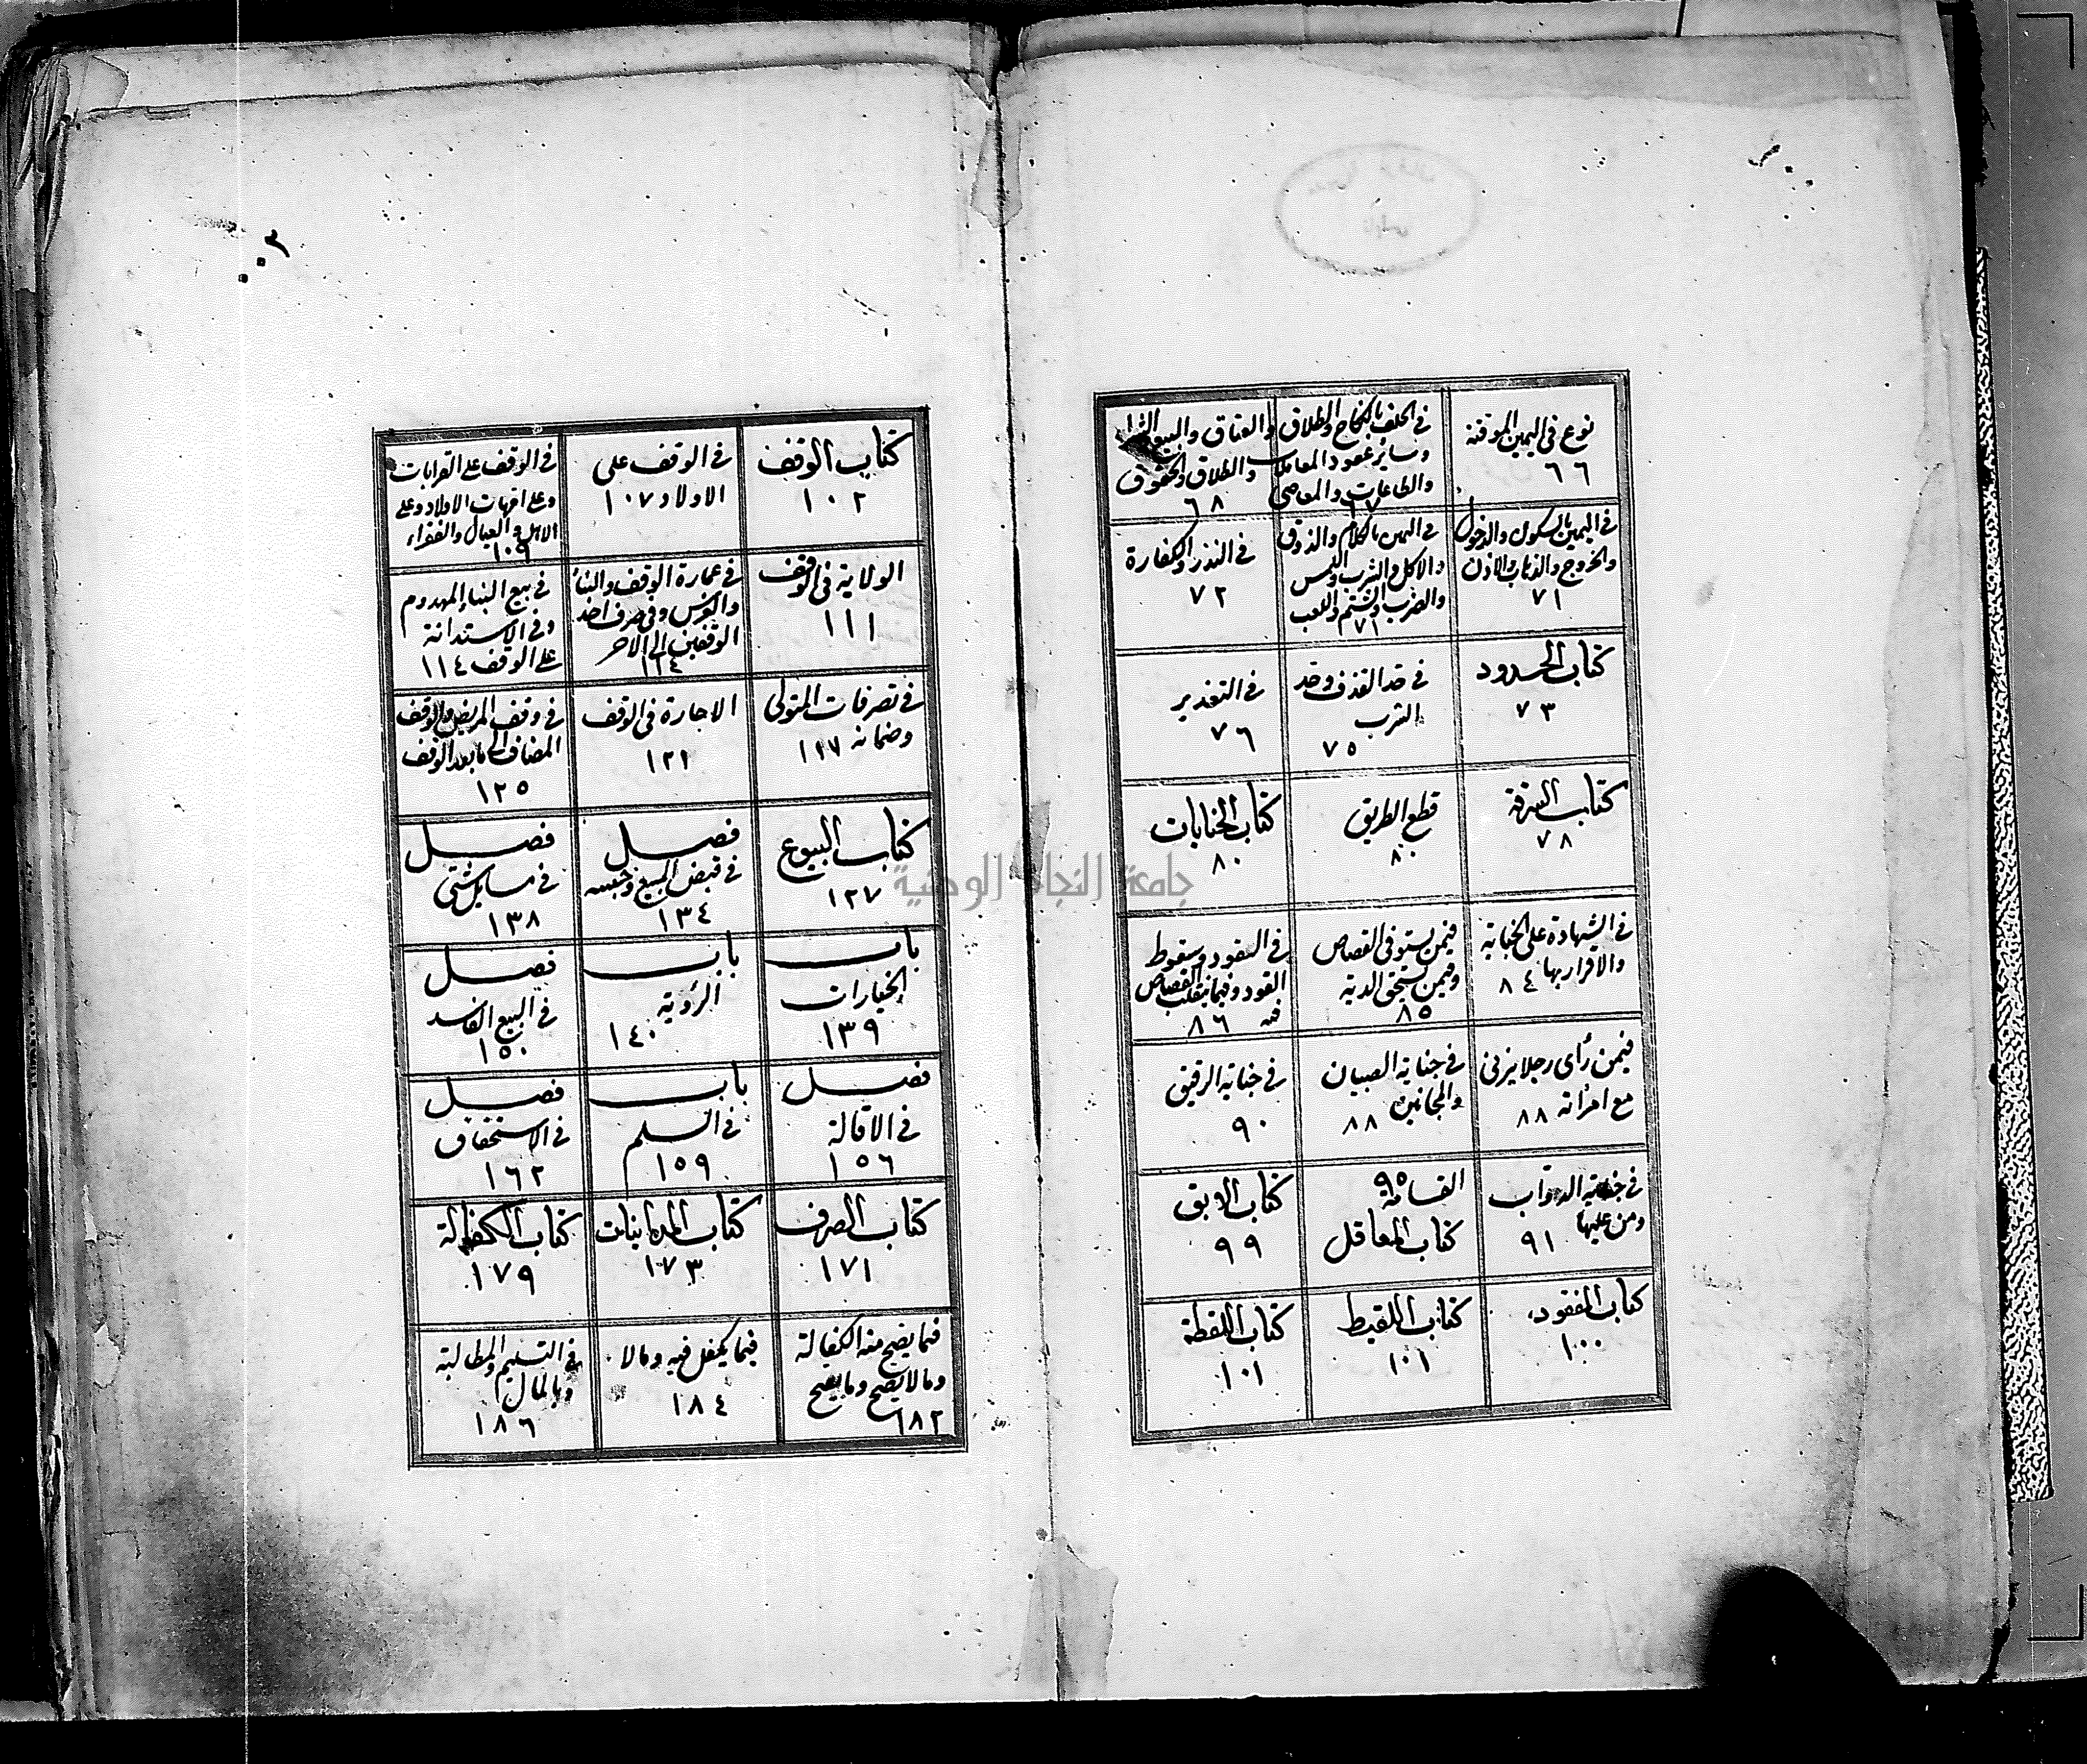 نوع فى اليمين الموقتة
٦٦
فى الحلف بالنكاح والطلاق
وساير عقود المعاملات
والطاعات والمعاصى
٦٧
والعتاق والبيع والشراء
والطلاق والحقوق
٦٨
فى اليمين بالسكون والدخول
والخروج والذهاب والاذن
٧١
فى اليمين بالكلام والذوق
والاكل والشرب واللبس
والضرب والشتم واللعب
٧١
فى النذر والكفارة
٧٢
كتاب الحدود
٧٣
فى حد القذف وحد
الشرب
٧٥
فى التعذير
٧٦
كتاب السرقة
٧٨
قطع الطريق
٨٠
كتاب الجنايات
٨٠
فى الشهادة على الجناية
والاقرار بها ٨٤
فيمن يستوفى القصاص
وفيمن يستحق الدية
٨٥
فى القود وسقوط
القود وفيما ينقلب القصاص
٨٦
فيمن رأى رجلا يزنى
مع امرأته ٨٨
فى جناية الصبيان
والمجانين ٨٨
فى جناية الرقيق
٩٠
فى جناية الدواب
ومن عليها ٩١
القسامة ٩٥
كتاب المعاقل
كتاب الابق
٩٩
كتاب المفقود
١٠٠
كتاب اللقيط
١٠١
كتاب اللقطة
١٠١
٠٠٣
كتاب الوقف
١٠٢
فى الوقف على
الاولاد ١٠٧
فى الوقف على القرابات
وعلى امهات الاولاد وعلى
الاهل والعيال والفقراء
١٠٩
الولاية فى الوقف
١١١
فى عمارة الوقف والبناء
والغرس وفى صرف احد
الوقفين الى الاخر
١١٤
فى بيع البناء المهدوم
وفى الاستدانة
على الوقف ١١٤
فى تصرفات المتولى
وضمانه ١١٧
الاجارة فى الوقف
١٢١
فى وقف المريض والوقف
المضاف الى ما بعد الوقف
١٢٥
كتاب البيوع
١٢٧
فصل
فى قبض المبيع وحبسه
١٣٤
فصل
فى مسايل شتى
١٣٨
باب
الخيارات
١٣٩
باب
الرؤية
١٤٠
فصل
فى البيع الفاسد
١٥٠
فصل
فى الاقالة
١٥٦
باب
فى السلم
١٥٩
فصل
فى الاستحقاق
١٦٢
كتاب الصرف
١٧١
كتاب المداينات
١٧٣
كتاب الكفالة
١٧٩
فيما يصح منه الكفالة
وما لا يصح وما يصح
٦٨٢
فيما يكفل فيه وما لا
١٨٤
فى التسليم والمطالبة
وبالمال
١٨٦
جامعة النجاح الوطنية